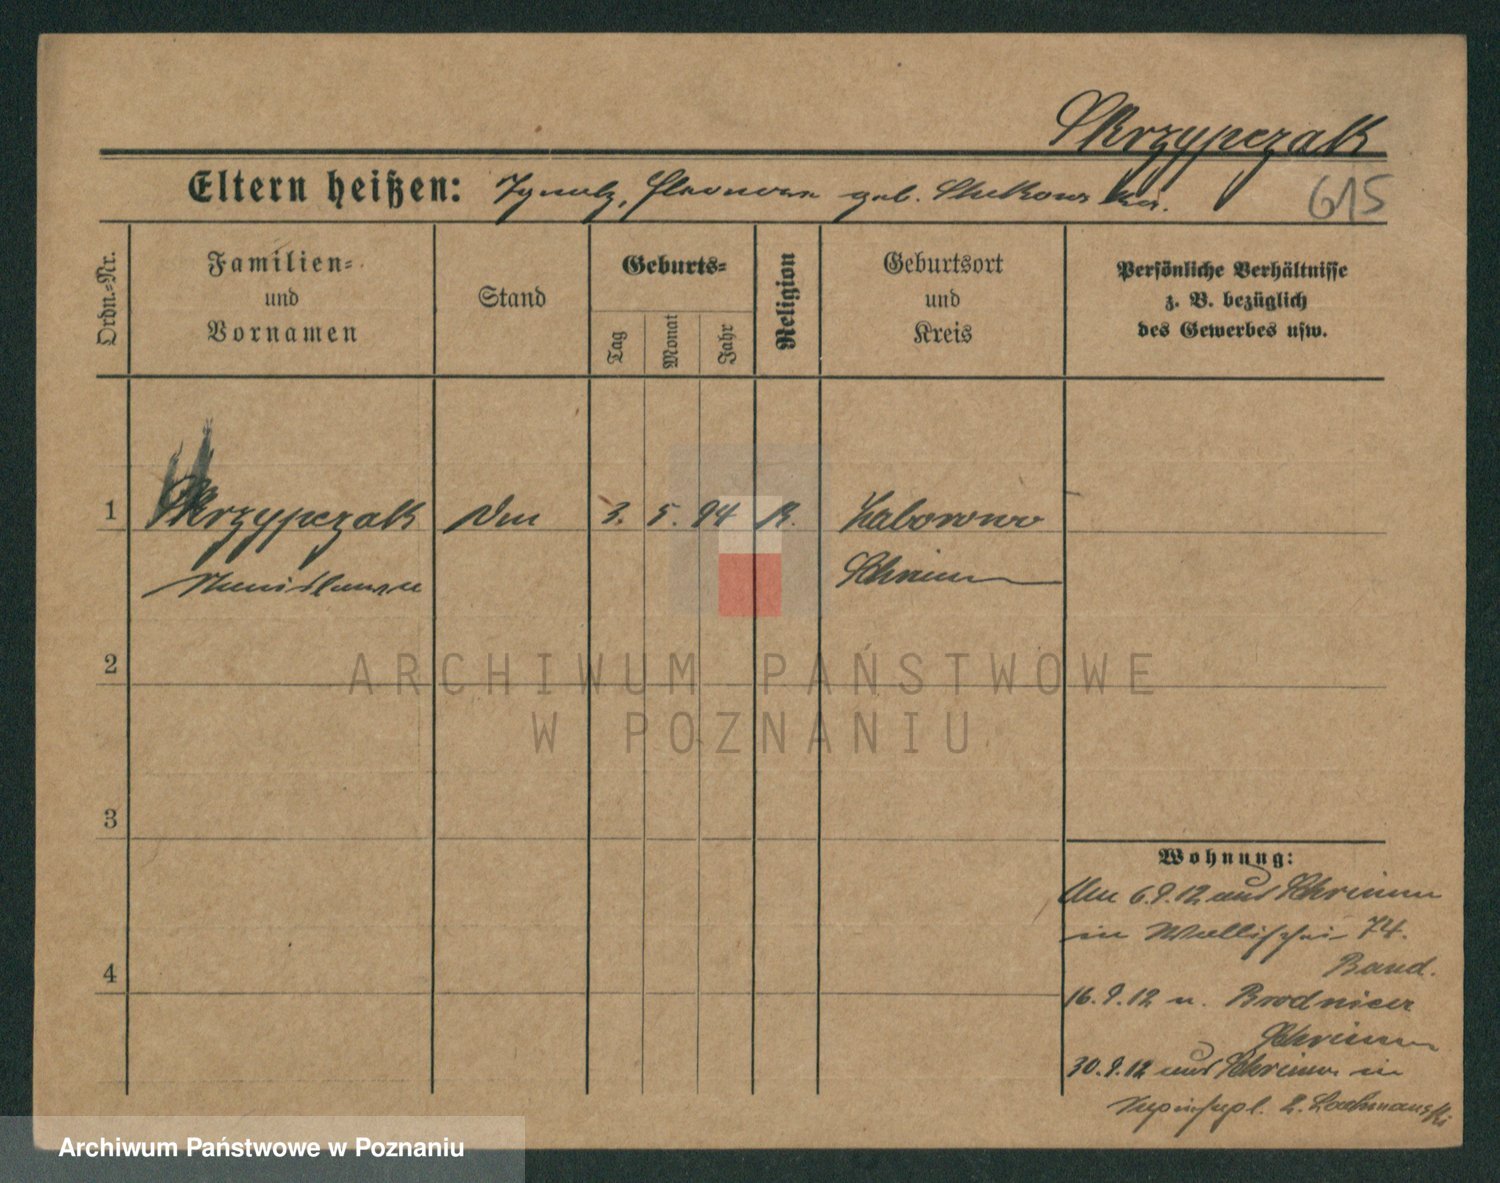 Skrzypczak
Eltern heißen: Ignatz, Eleonore geb.
615
Ordn.-Nr.
Familien-
und
Vornamen
Stand
Geburts-
Tag
Monat
Jahr
Religion
Geburtsort
und
Kreis
Persönliche Verhältnisse
z. B. bezüglich
des Gewerbes usw.
1 Skrzypczak 3. 5. 94 K. Zaborowo
Stanislawa Schrimm
2
ARCHIWUM PAŃSTWOWE
W POZNANIU
3
Wohnung:
6.9.12 aus Schrimm
in Wallischei 74.
4
16.9.12 n. Brodnica
Schrimm
30.9.12 aus Schrimm in
2. Lachmanski
Archiwum Państwowe w Poznaniu